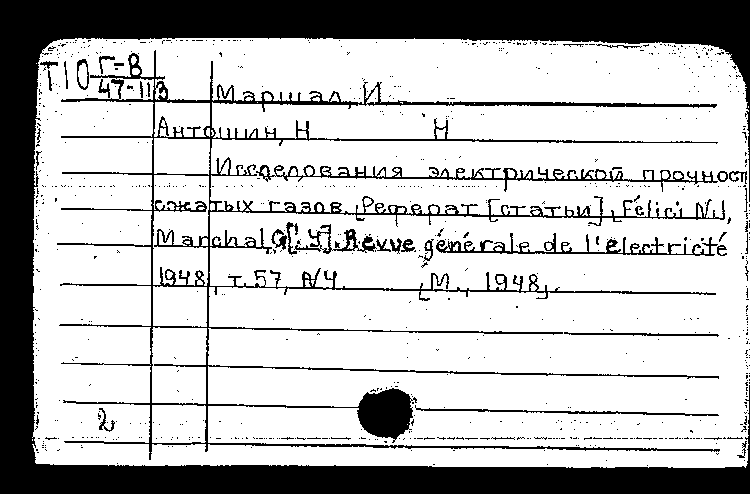 Т10 Г-8
47-113
Маршал, И.
Антошин, Н Н
Исследования электрической прочност
сжатых газов. [Реферат [статьи], Felici N.J,
Marchal, G[. Y]. Revue générale de l'electricité
1948, т. 57, №4. [М., 1948].
2